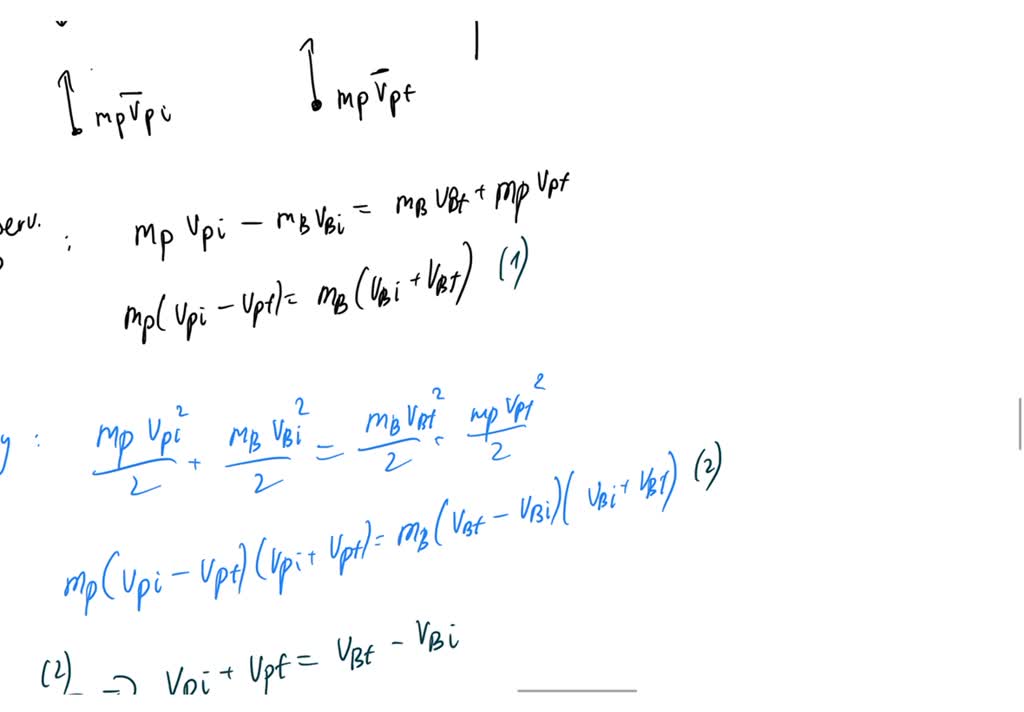 mp v̄pi mp v̄pf
serv. : mp vpi − mB vBi = mB vBf + mp vpf
mp(vpi − vpf) = mB(vBi + vBf) (1)
y : mp vpi²/2 + mB vBi²/2 = mB vBf²/2 · mp vpf²/2
mp(vpi − vpf)(vpi + vpf) = mB(vBf − vBi)(vBi + vBf) (2)
(2) ⇒ vpi + vpf = vBf − vBi